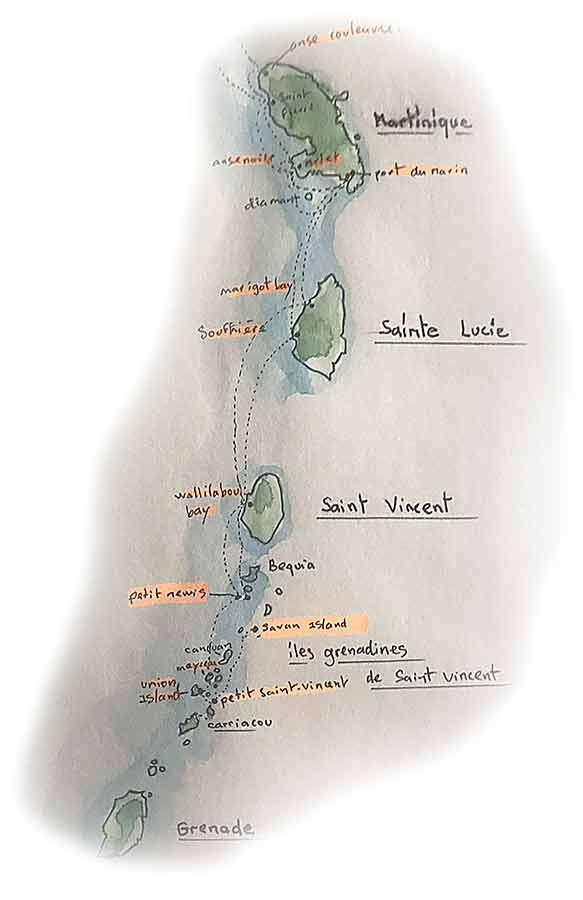 anse couleuvre
Saint
Pierre
Martinique
anse noire
port du marin
diamant
marigot bay
Souffrière
Sainte Lucie
wallilabou
bay
Saint Vincent
Bequia
petit nevis
Savan Island
canouan
îles grenadines
de Saint Vincent
mayreau
union
island
petit saint-vincent
carriacou
Grenade